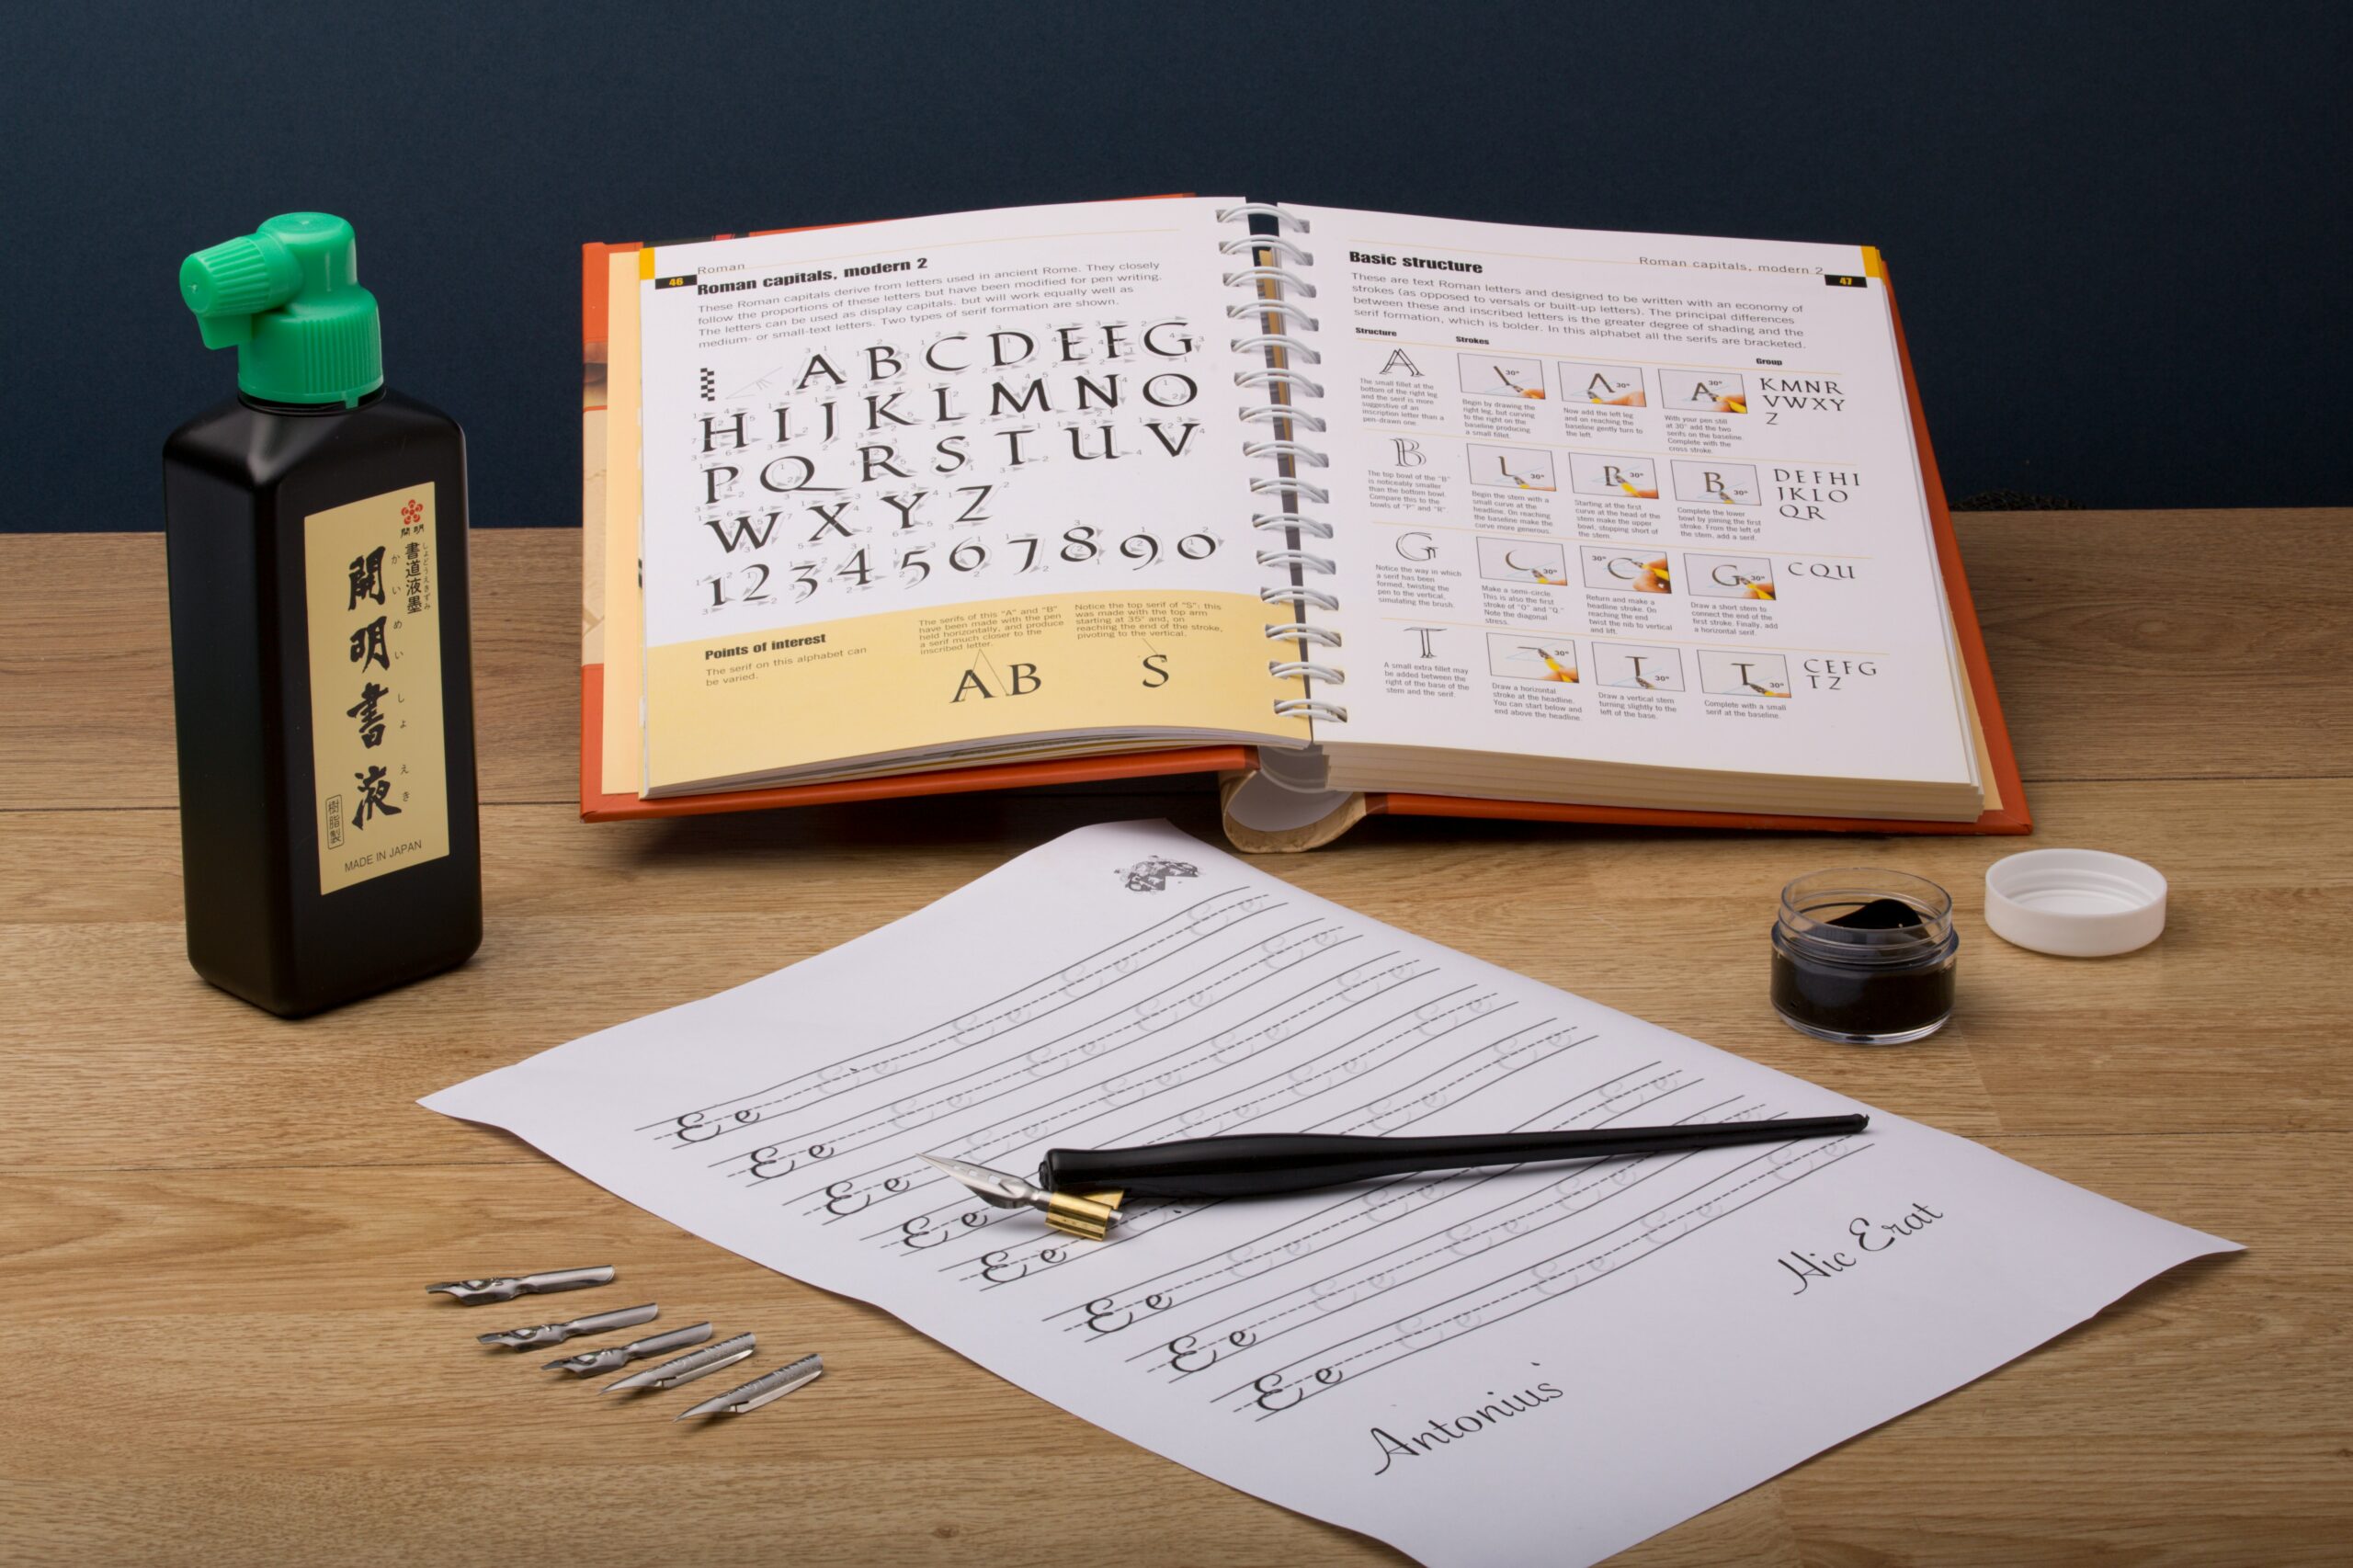 開明
書道液墨
しょどうえきずみ
開明書液
かいめいしょえき
樹脂製
MADE IN JAPAN
46
Roman
Roman capitals, modern 2
These Roman capitals derive from letters used in ancient Rome. They closely
follow the proportions of these letters but have been modified for pen writing.
The letters can be used as display capitals, but will work equally well as
medium- or small-text letters. Two types of serif formation are shown.
A B C D E F G
H I J K L M N O
P Q R S T U V
W X Y Z
1 2 3 4 5 6 7 8 9 0
Points of interest
The serif on this alphabet can
be varied.
The serifs of this "A" and "B"
have been made with the pen
held horizontally, and produce
a serif much closer to the
inscribed letter.
A B
Notice the top serif of "S": this
was made with the top arm
starting at 35° and, on
reaching the end of the stroke,
pivoting to the vertical.
S
Roman capitals, modern 2
47
Basic structure
These are text Roman letters and designed to be written with an economy of
strokes (as opposed to versals or built-up letters). The principal differences
between these and inscribed letters is the greater degree of shading and the
serif formation, which is bolder. In this alphabet all the serifs are bracketed.
Structure
Strokes
Group
A
The small fillet at the
bottom of the right leg
and the serif is more
suggestive of an
inscription letter than a
pen-drawn one.
30°
Begin by drawing the
right leg, but curving
to the right on the
baseline producing
a small fillet.
30°
Now add the left leg
and on reaching the
baseline gently turn to
the left.
30°
With your pen still
at 30° add the two
serifs on the baseline.
Complete with the
cross stroke.
K M N R
V W X Y
Z
B
The top bowl of the "B"
is noticeably smaller
than the bottom bowl.
Compare this to the
bowls of "P" and "R"
30°
Begin the stem with a
small curve at the
headline. On reaching
the baseline make the
curve more generous.
30°
Starting at the first
curve at the head of the
stem make the upper
bowl, stopping short of
the stem.
30°
Complete the lower
bowl by joining the first
stroke. From the left of
the stem, add a serif.
D E F H I
J K L O
Q R
G
Notice the way in which
a serif has been
formed, twisting the
pen to the vertical,
simulating the brush.
30°
Make a semi-circle.
This is also the first
stroke of "O" and "Q."
Note the diagonal
stress.
30°
Return and make a
headline stroke. On
reaching the end
twist the nib to vertical
and lift.
30°
Draw a short stem to
connect the end of the
first stroke. Finally, add
a horizontal serif.
C Q U
T
A small extra fillet may
be added between the
right of the base of the
stem and the serif.
30°
Draw a horizontal
stroke at the headline.
You can start below and
end above the headline.
30°
Draw a vertical stem
turning slightly to the
left of the base.
30°
Complete with a small
serif at the baseline.
C E F G
T Z
E e E e E e E e E e
E e E e E e E e E e
E e E e E e E e E e
E e E e E e E e E e
E e
E e
E e
E e
Antonius
Hic Erat